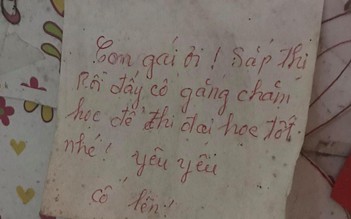 Con gái ơi! Sắp thi
Rồi đấy cố gắng chăm
học để thi đại học tốt.
nhé! yêu yêu
cố lên!